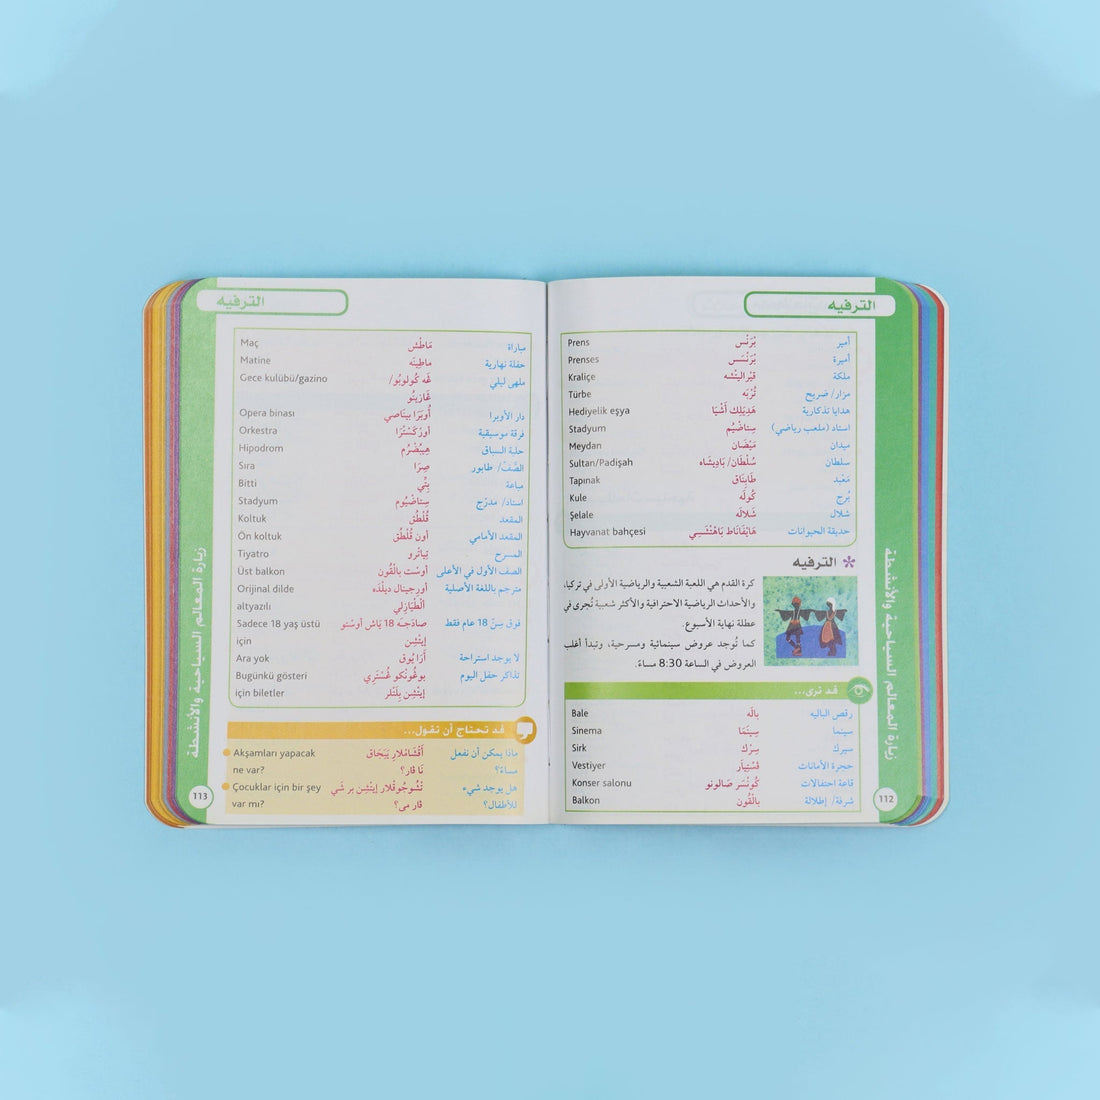 الترفيه
أمير بْرَنْس Prens
أميرة بْرَنْسَس Prenses
ملكة قيْرَاليتْشه Kraliçe
مزار/ ضريح تُرْبَه Türbe
هدايا تذكارية هَدِيَلِك أَشْيَا Hediyelik eşya
استاد (ملعب رياضي) سِتاضْيُم Stadyum
ميدان مَيْضَان Meydan
سلطان سُلْطَان/ بَادِيشَاه Sultan/Padişah
مَعْبَد طَابِنَاق Tapınak
بُرج كُولَه Kule
شلال شَلالَه Şelale
حديقة الحيوانات Hayvanat bahçesi
الترفيه
كرة القدم هي اللعبة الشعبية والرياضية الأولى في تركيا،
والأحداث الرياضية الاحترافية والأكثر شعبية تُجرى في
عطلة نهاية الأسبوع.
كما تُوجد عروض سينمائية ومسرحية، وتبدأ أغلب
العروض في الساعة 8:30 مساءً.
قد ترى...
رقص الباليه بالَه Bale
سينما سِينَمَا Sinema
سيرك سِرْك Sirk
حجرة الأمانات فَسْتِيَار Vestiyer
قاعة احتفالات كُونْسَر صَالونو Konser salonu
شرفة/ إطلالة بالْقُون Balkon
زيارة المعالم السياحية والأنشطة
112
الترفيه
مباراة مَاطْش Maç
حفلة نهارية ماطِينَه Matine
ملهى ليلي غَه كُولوبُو/ Gece kulübü/gazino
غَازينُو
دار الأوبرا أُوبَرَا بيناصي Opera binası
فرقة موسيقية أورْكَسْتْرَا Orkestra
حلبة السباق هيبُضْرُم Hipodrom
الصَّفّ/ طابور صِرَا Sıra
مباعة بِتِّي Bitti
استاد/ مدرّج سِتاضْيُوم Stadyum
المقعد قُلْطُق Koltuk
المقعد الأمامي أون قُلْطُق Ön koltuk
المسرح تِياتْرو Tiyatro
الصف الأول في الأعلى أوسْت بالْقُون Üst balkon
مترجم باللغة الأصلية أورجينال ديلْدَه Orijinal dilde
أَلْطْيَازلي altyazılı
فوق سِنّ 18 عام فقط صادَجَه 18 يَاش أوسْتو Sadece 18 yaş üstü
إيتْشِن için
لا يوجد استراحة أَرَا يُوق Ara yok
تذاكر حفل اليوم بوغُونْكو غُسْتَري Bugünkü gösteri
إيتْشِن بِلَتْلَر için biletler
قد تحتاج أن تقول...
ماذا يمكن أن نفعل أَقْشَامْلار يَبَجَاق Akşamları yapacak
مساءً؟ نَا فَار؟ ne var?
هل يوجد شيء تْشُوجُوقْلار إيتْشِن بر شَي Çocuklar için bir şey
للأطفال؟ فار مى؟ var mı?
زيارة المعالم السياحية والأنشطة
113